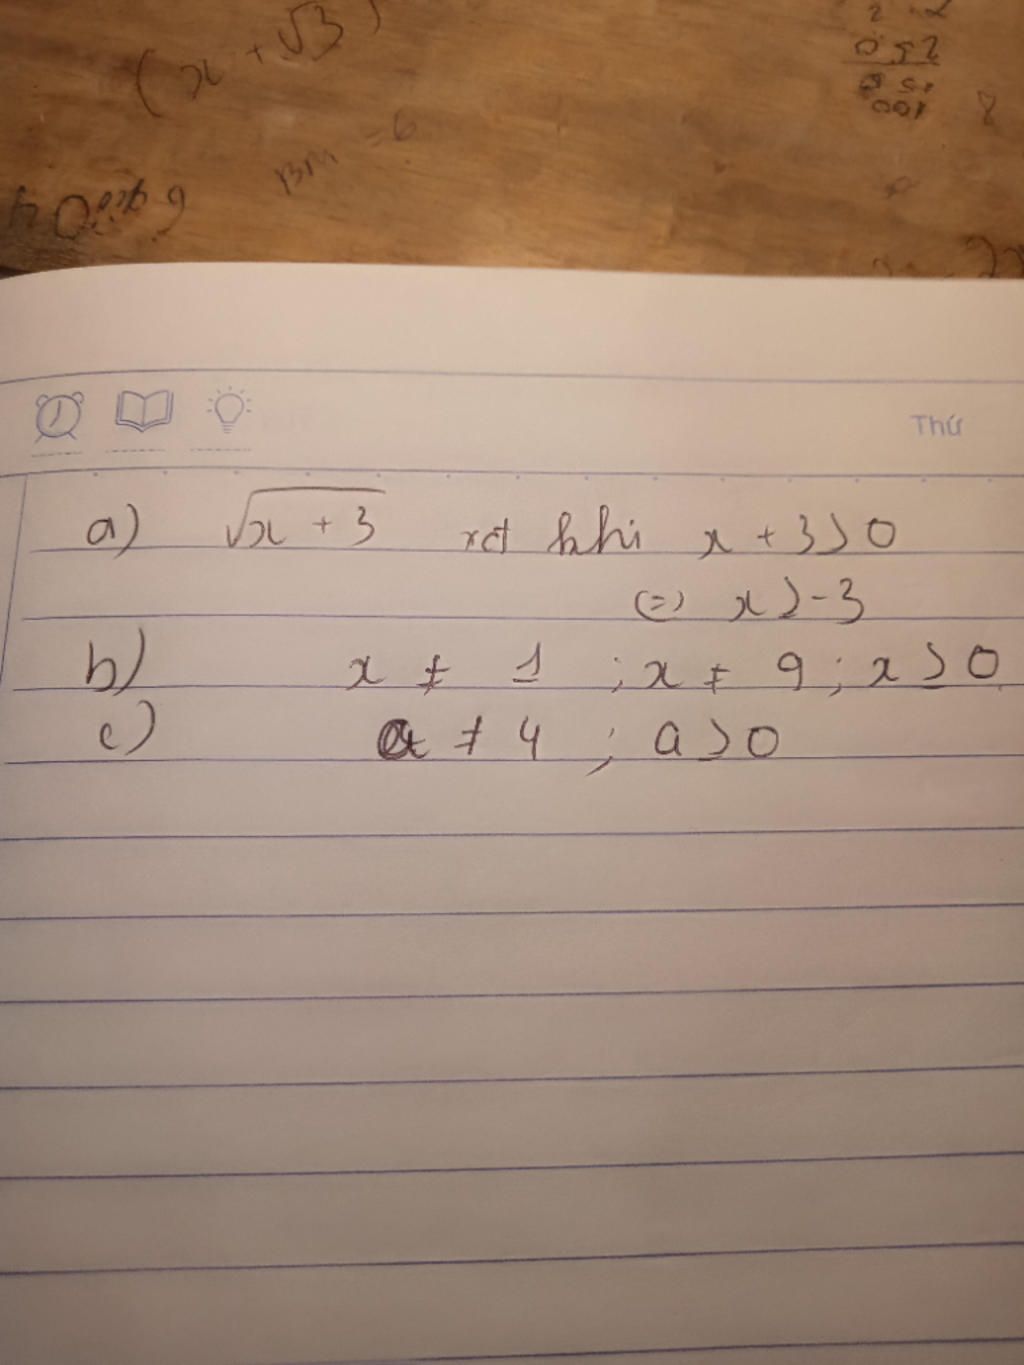 (x + √3)
BM = 6
Thứ
a) √x + 3 xđ khi x + 3 > 0
(=) x > -3
b) x ≠ 1 ; x ≠ 9 ; x > 0
c) a ≠ 4 ; a > 0